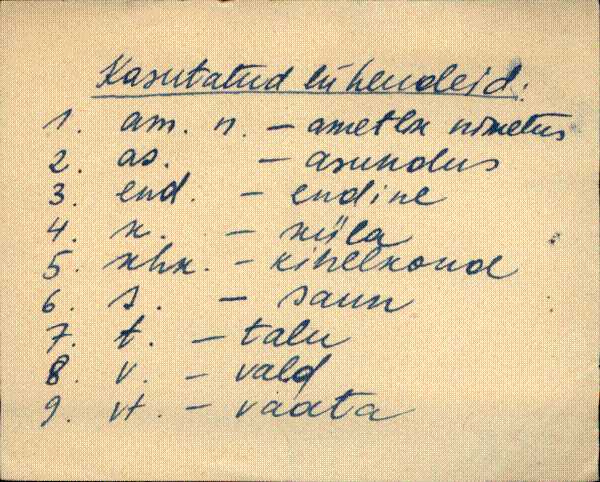 Kasutatud lühendeid:
1. am. n. - ametlik nimetus
2. as. - asundus
3. end. - endine
4. k. - küla
5. khk. - kihelkond
6. s. - saun
7. t. - talu
8. v. - vald
9. vt. - vaata